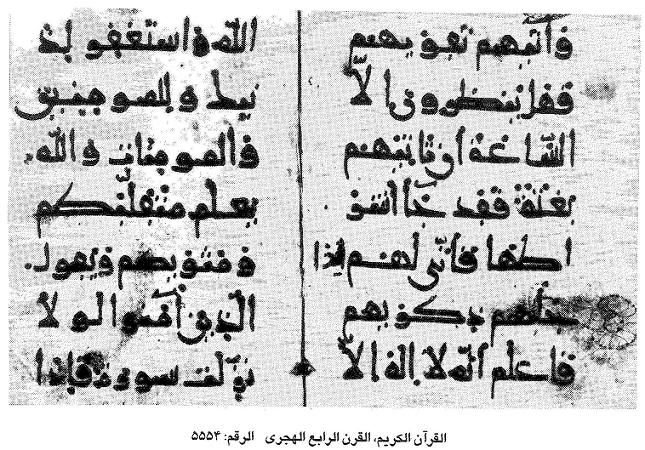 واتيهم تقويهم
فهل ينظرون الّا
السّاعة ان تاتيهم
بغتة فقد جا اشر
اطها فانّى لهم اذا
جاتهم ذكريهم
فاعلم انّه لا اله الّا
الله واستغفر لذ
نبك وللمومنين
والمومنات والله
يعلم متقلّبكم
ومثويكم ويقول
الّذين آمنوا لولا
نزّلت سورة فاذا
القرآن الكريم، القرن الرابع الهجرى الرقم: ۵۵۵۴